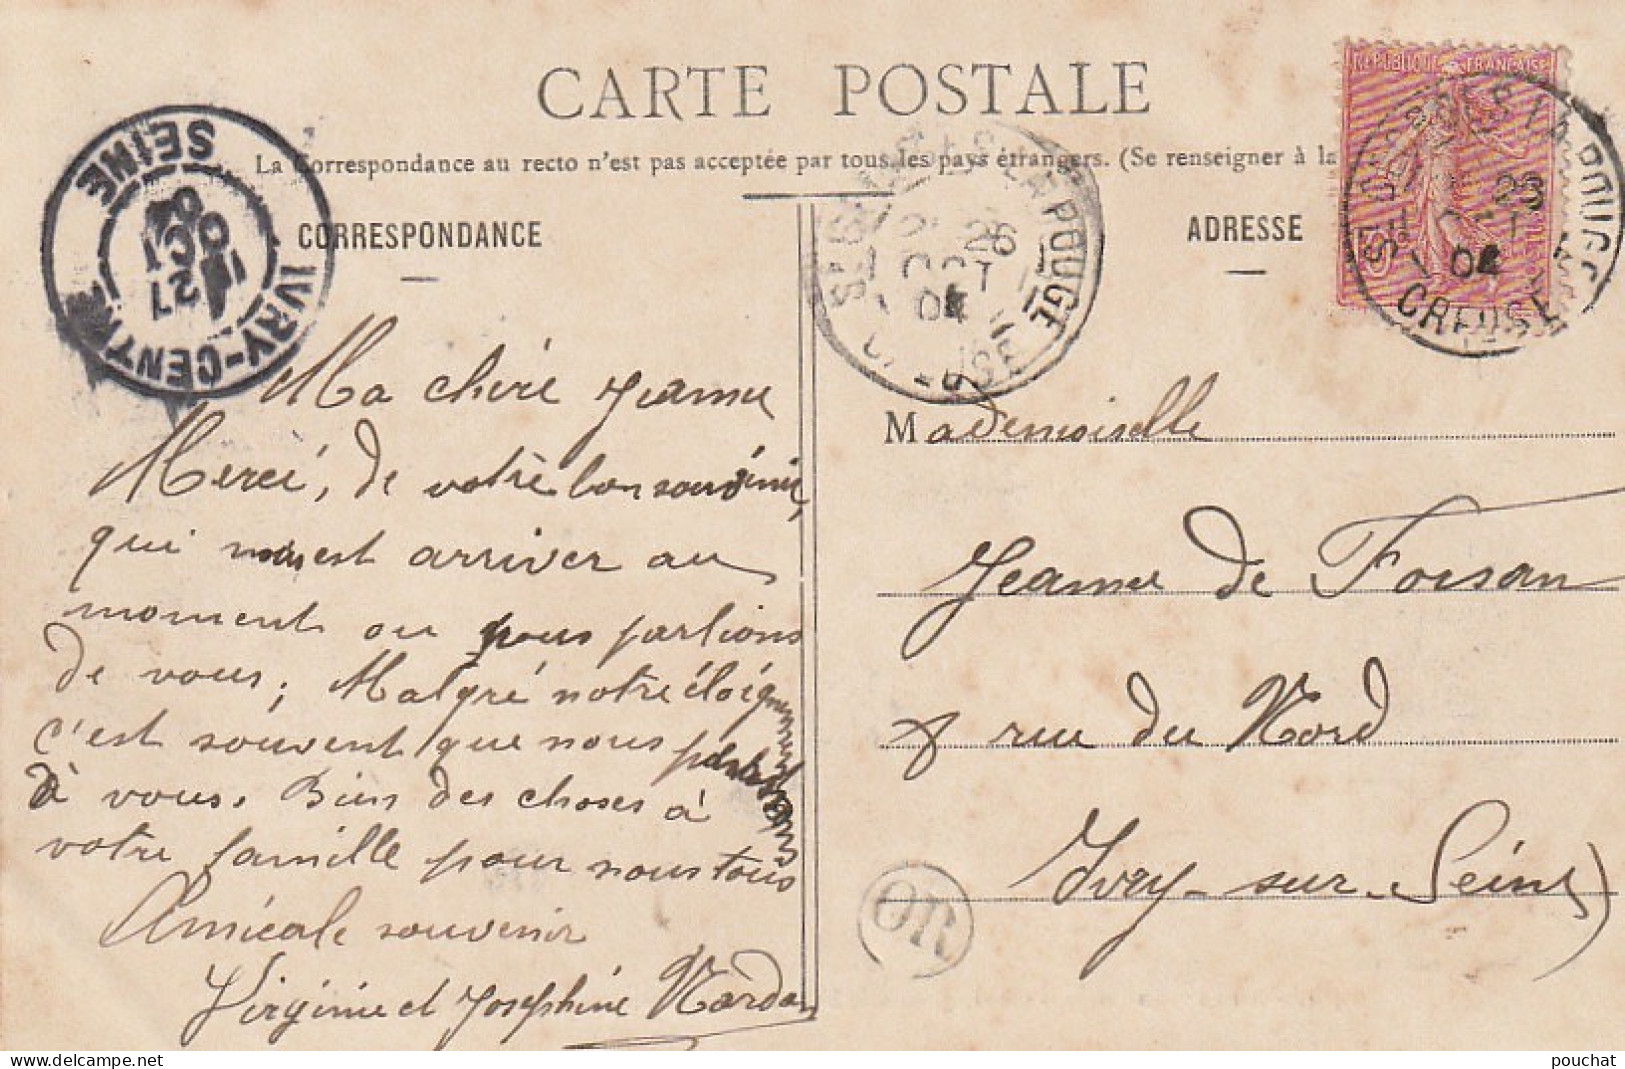 CARTE POSTALE
La Correspondance au recto n'est pas acceptée par tous les pays étrangers. (Se renseigner à la
CORRESPONDANCE
ADRESSE
RÉPUBLIQUE FRANÇAISE
IVRY-CENTRE
SEINE
11 27
OCT
04
LA POUGE
26
OCT
04
LA POUGE
26
04
CREUSE
Ma chère Jeanne
Merci, de votre bon souvenir,
qui nous est arriver au
moment ou nous parlions
de vous; Malgré notre éloignement
c'est souvent que nous pensons
à vous. Bien des choses à
votre famille pour nous tous
Amicale souvenir
Virginie et Joséphine Nardon
Mademoiselle
Jeanne de Forsan
8 rue du Nord
Ivry-sur-Seine)
OR
delcampe.net
pouchat